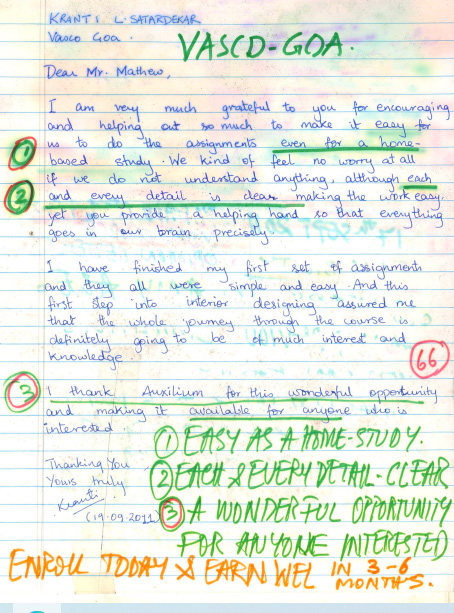 KRANTI L. SATARDEKAR
Vasco Goa.
VASCO-GOA.
Dear Mr. Mathew,
I am very much grateful to you for encouraging
and helping out so much to make it easy for
us to do the assignments even for a home-
1 based study. We kind of feel no worry at all
if we do not understand anything, although each
2 and every detail is clear making the work easy.
yet you provide a helping hand so that everything
goes in our brain precisely.
I have finished my first set of assignments
and they all were simple and easy. And this
first step into interior designing assured me
that the whole journey through the course is
definitely going to be of much interest and
knowledge.
66
3 I thank Auxilium for this wonderful opportunity
and making it available for anyone who is
interested.
1 EASY AS A HOME-STUDY.
Thanking You
2 EACH & EVERY DETAIL-CLEAR
Yours truly
Kranti
(19.09.2011)
3 A WONDERFUL OPPORTUNITY
FOR ANYONE INTERESTED
ENROLL TODAY & EARN WEL IN 3-6
MONTHS.